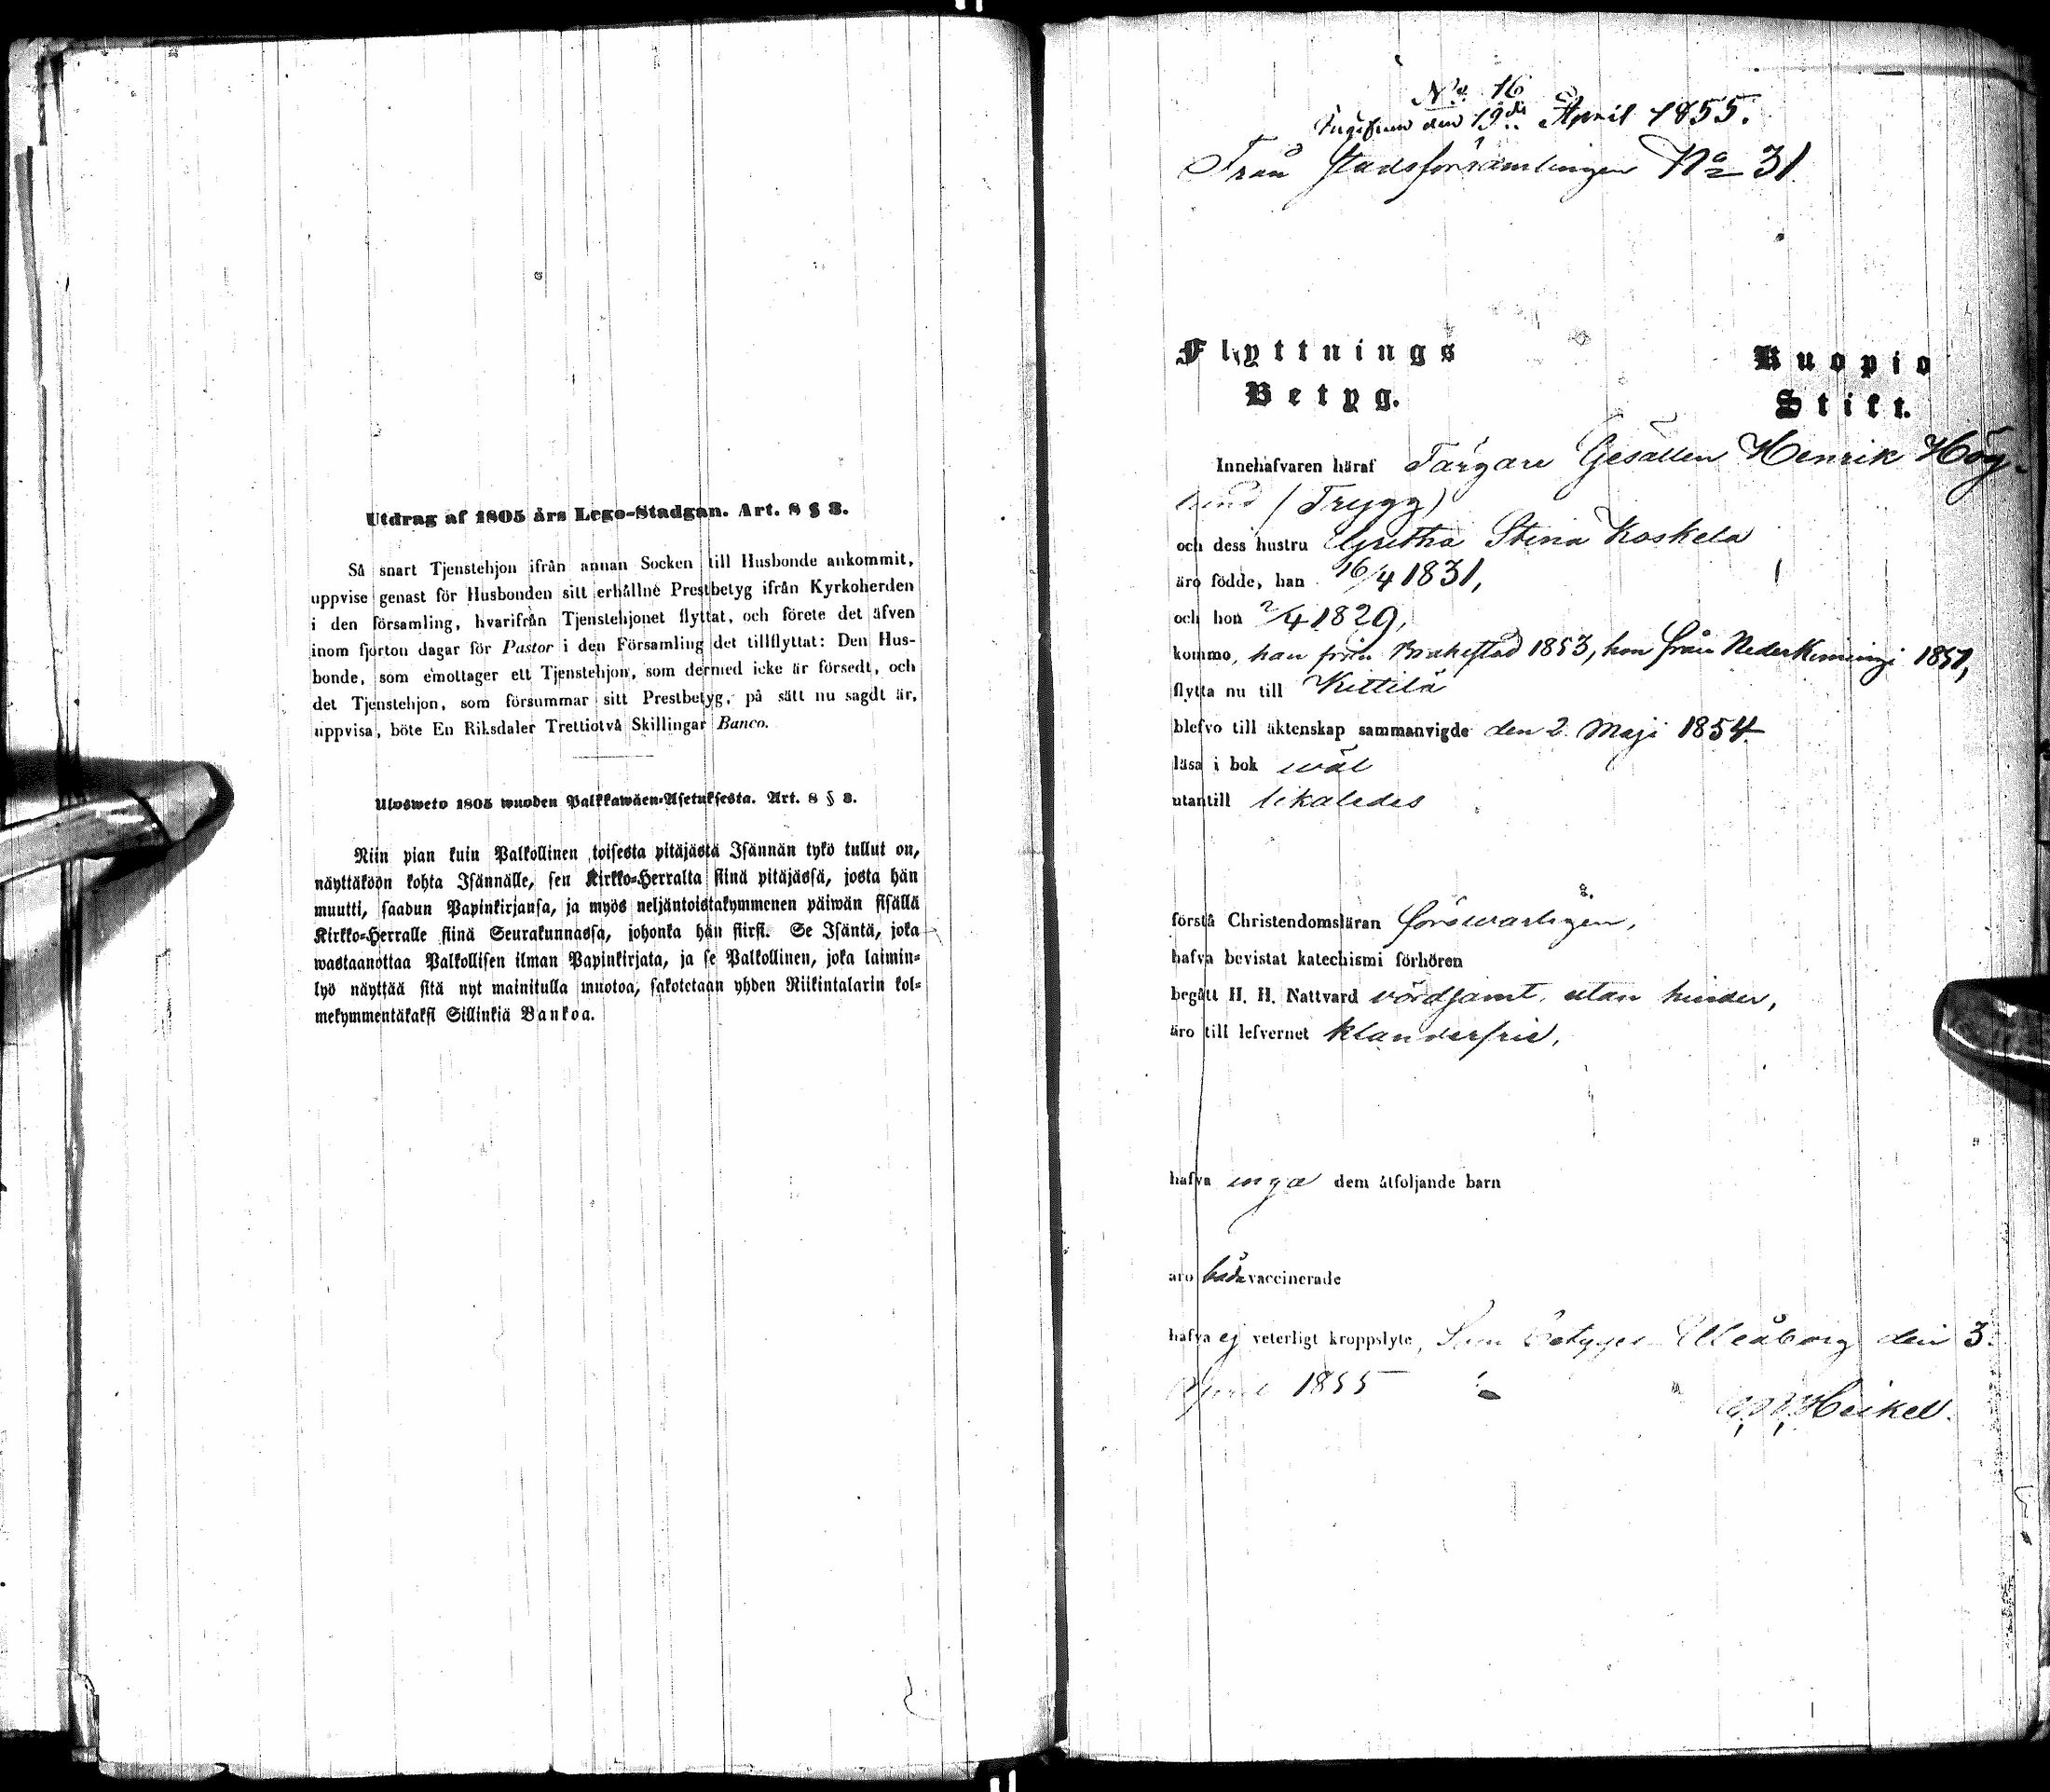 Utdrag af 1805 års Lego-Stadgan. Art. 8 § 3.
Så snart Tjenstehjon ifrån annan Socken till Husbonde ankommit,
uppvise genast för Husbonden sitt erhållne Prestbetyg ifrån Kyrkoherden
i den församling, hvarifrån Tjenstehjonet flyttat, och förete det äfven
inom fjorton dagar för Pastor i den Församling det tillflyttat: Den Hus-
bonde, som emottager ett Tjenstehjon, som dermed icke är försedt, och
det Tjenstehjon, som försummar sitt Prestbetyg, på sätt nu sagdt är,
uppvisa, böte En Riksdaler Trettiotvå Skillingar Banco.
Ulosweto 1805 wuoden Palkkawäen-Asetuksesta. Art. 8 § 3.
Niin pian kuin Palkollinen toisesta pitäjästä Isännän tykö tullut on,
näyttäköön kohta Isännälle, sen Kirkko-Herralta siinä pitäjässä, josta hän
muutti, saadun Papinkirjansa, ja myös neljäntoistakymmenen päiwän sisällä
Kirkko-Herralle siinä Seurakunnassa, johonka hän siirsi. Se Isäntä, joka
wastaanottaa Palkollisen ilman Papinkirjata, ja se Palkollinen, joka laimin-
lyö näyttää sitä nyt mainitulla muotoa, sakotetaan yhden Riikintalarin kol-
mekymmentäkaksi Sillinkiä Bankoa.
No 16
den 19de April 1855.
Från Stadsförsamlingen No 31
Flyttnings
Betyg.
Kuopio
Stift.
Innehafvaren häraf Färgare Gesällen Henrik Hög-
lund (Trygg)
och dess hustru Gretha Stina Koskela
äro födde, han 16/4 1831,
och hon 2/4 1829,
kommo, han från Brahestad 1853, hon från Nederkiminge 1851,
flytta nu till Kittilä
blefvo till äktenskap sammanvigde den 2 Maji 1854.
läsa i bok wäl
utantill likaledes
förstå Christendomsläran försvarligen,
hafva bevistat katechismi förhören
begått H. H. Nattvard vördsamt, utan hinder,
äro till lefvernet klanderfrie,
hafva inga dem åtföljande barn
äro båda vaccinerade
hafva ej veterligt kroppslyte, Som betygar Uleåborg den 3
April 1855
Heikel.